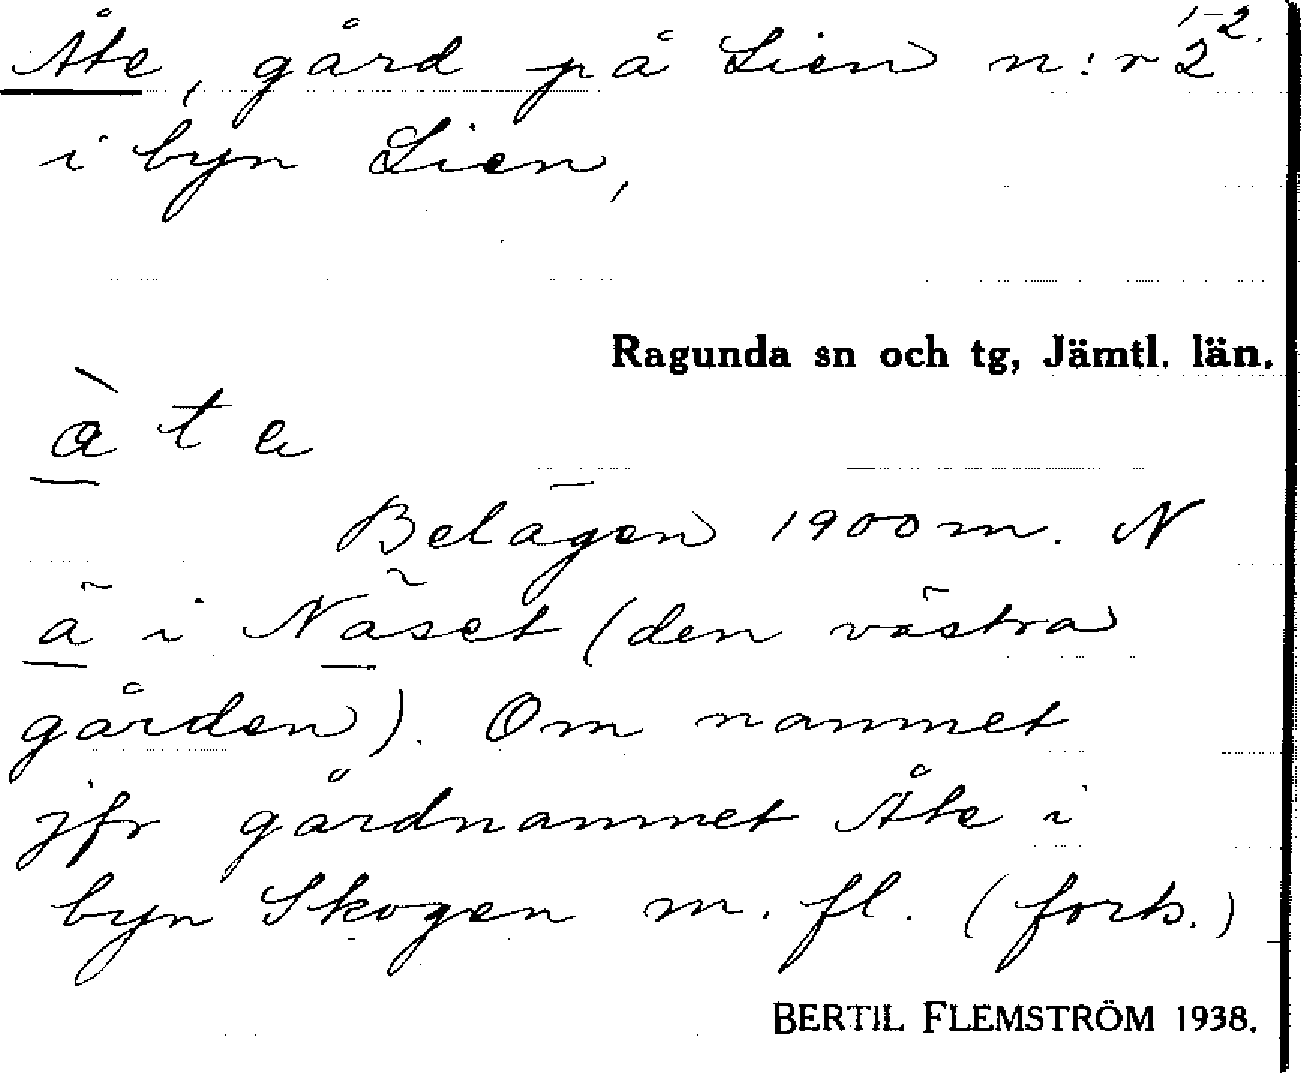 Åte, gård på Lien n:r 2 1-2.
i byn Lien,
Ragunda sn och tg, Jämtl. län.
à t e
Belägen 1900 m. N
ä i Näset (den västra
gården). Om namnet
jfr gårdnamnet Åte i
byn Skogen m. fl. (forts.)
BERTIL FLEMSTRÖM 1938.